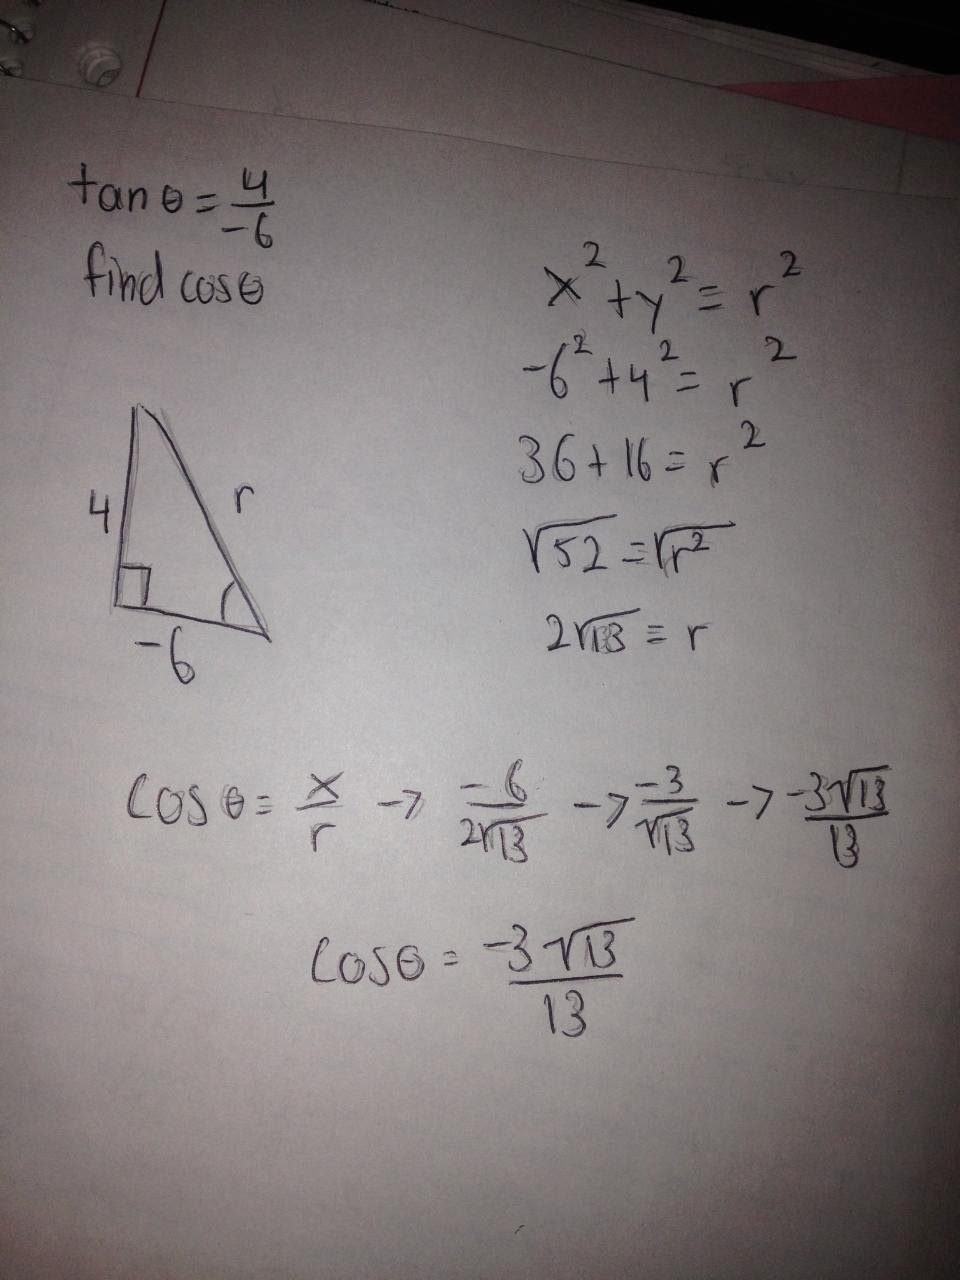 tan θ = 4/-6
find cos θ
x² + y² = r²
-6² + 4² = r²
36 + 16 = r²
√52 = √r²
2√13 = r
4
r
-6
cos θ = x/r -> -6/2√13 -> -3/√13 -> -3√13/13
cos θ = -3√13/13